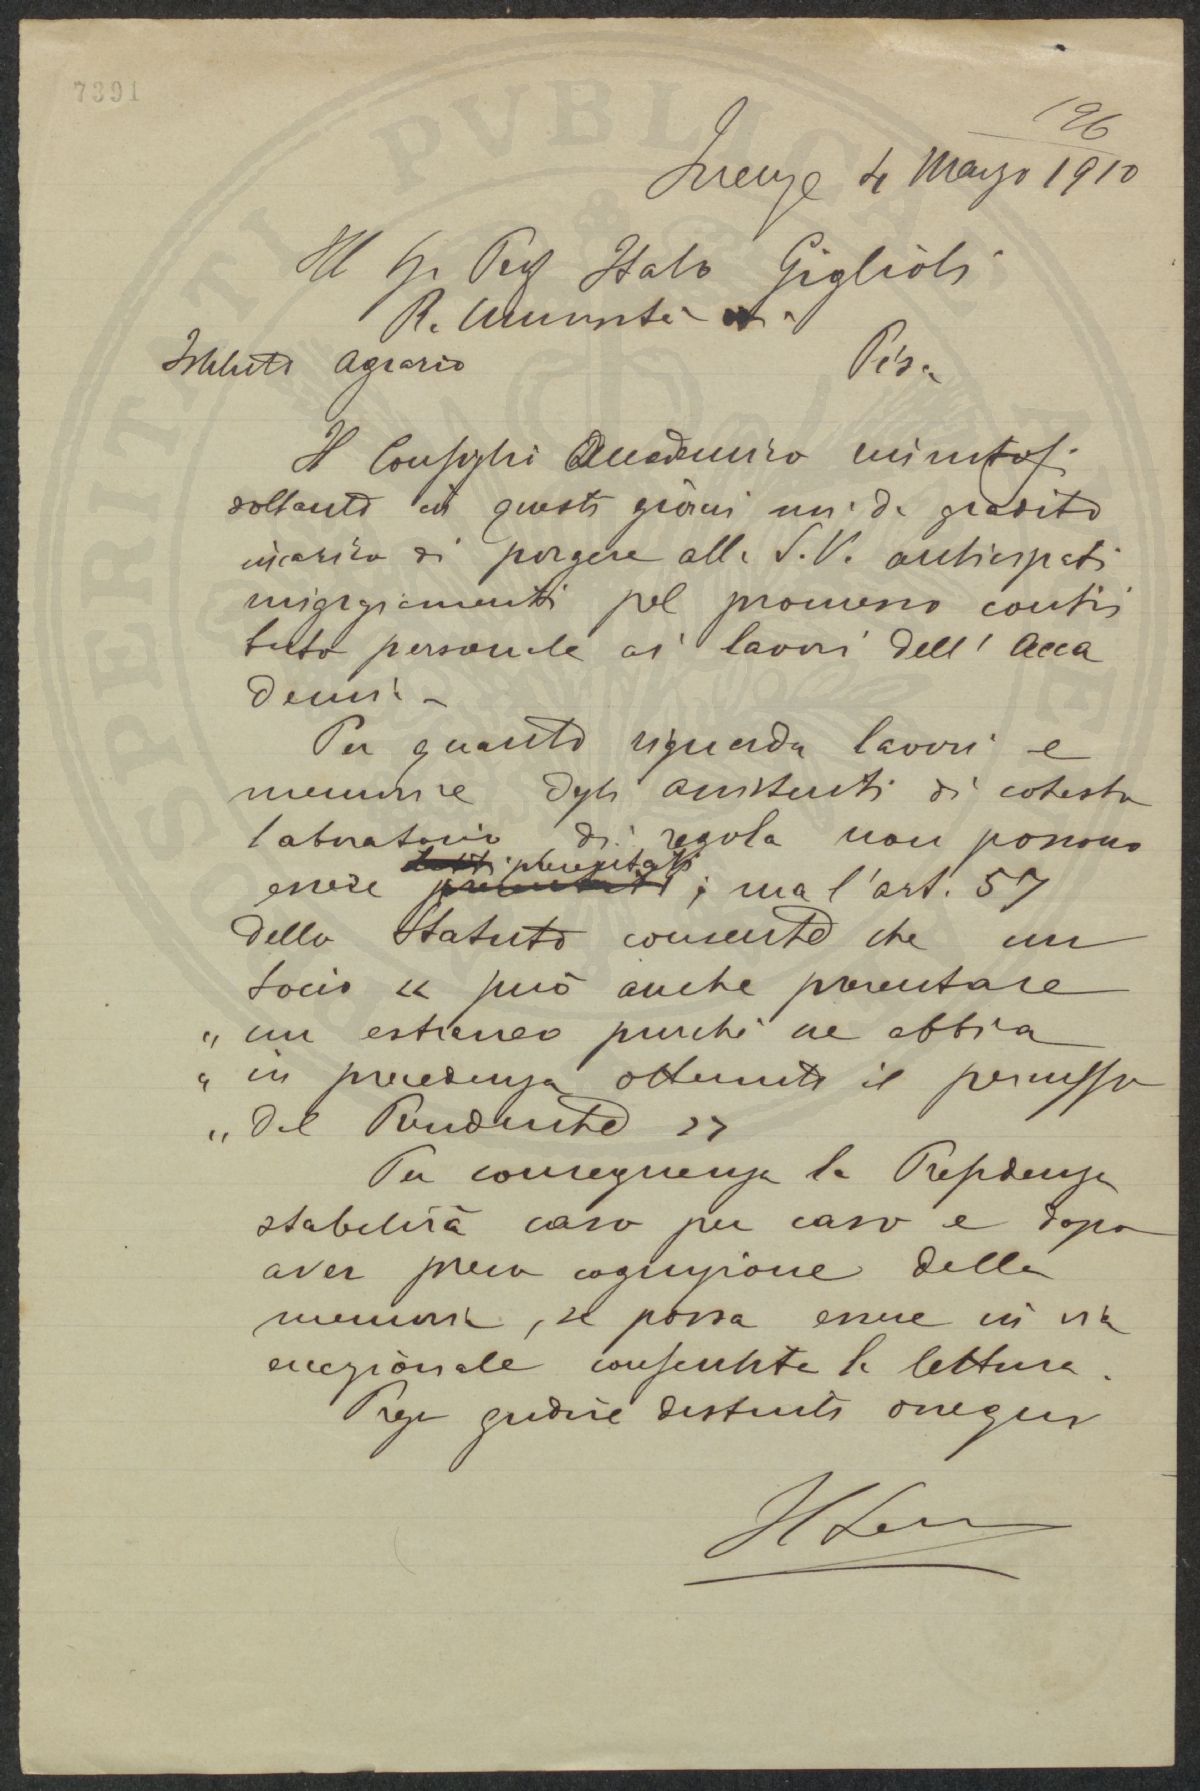 7391
196
Firenze 4 Marzo 1910
Ill Sr Prof Italo Giglioli
R. Università
Istituto Agrario Pisa
Il Consiglio Accademico riunitosi
soltanto in questi giorni mi dà gradito
incarico di porgere alla S.V. anticipati
ringraziamenti pel promesso contri
buto personale ai lavori dell'Acca
demia -
Per quanto riguarda lavori e
memorie degli assistenti di cotesto
laboratorio di regola non possono
presentati
essere ; ma l'art. 57
dello Statuto consente che un
Socio « può anche presentare
" un estraneo purchè ne abbia
" in precedenza ottenuto il permesso
" del Presidente »
Per conseguenza la Presidenza
stabilirà caso per caso e dopo
aver preso cognizione della
memoria, se possa essere in via
eccezionale consentita la lettura.
Prego gradire distinti ossequi
Il